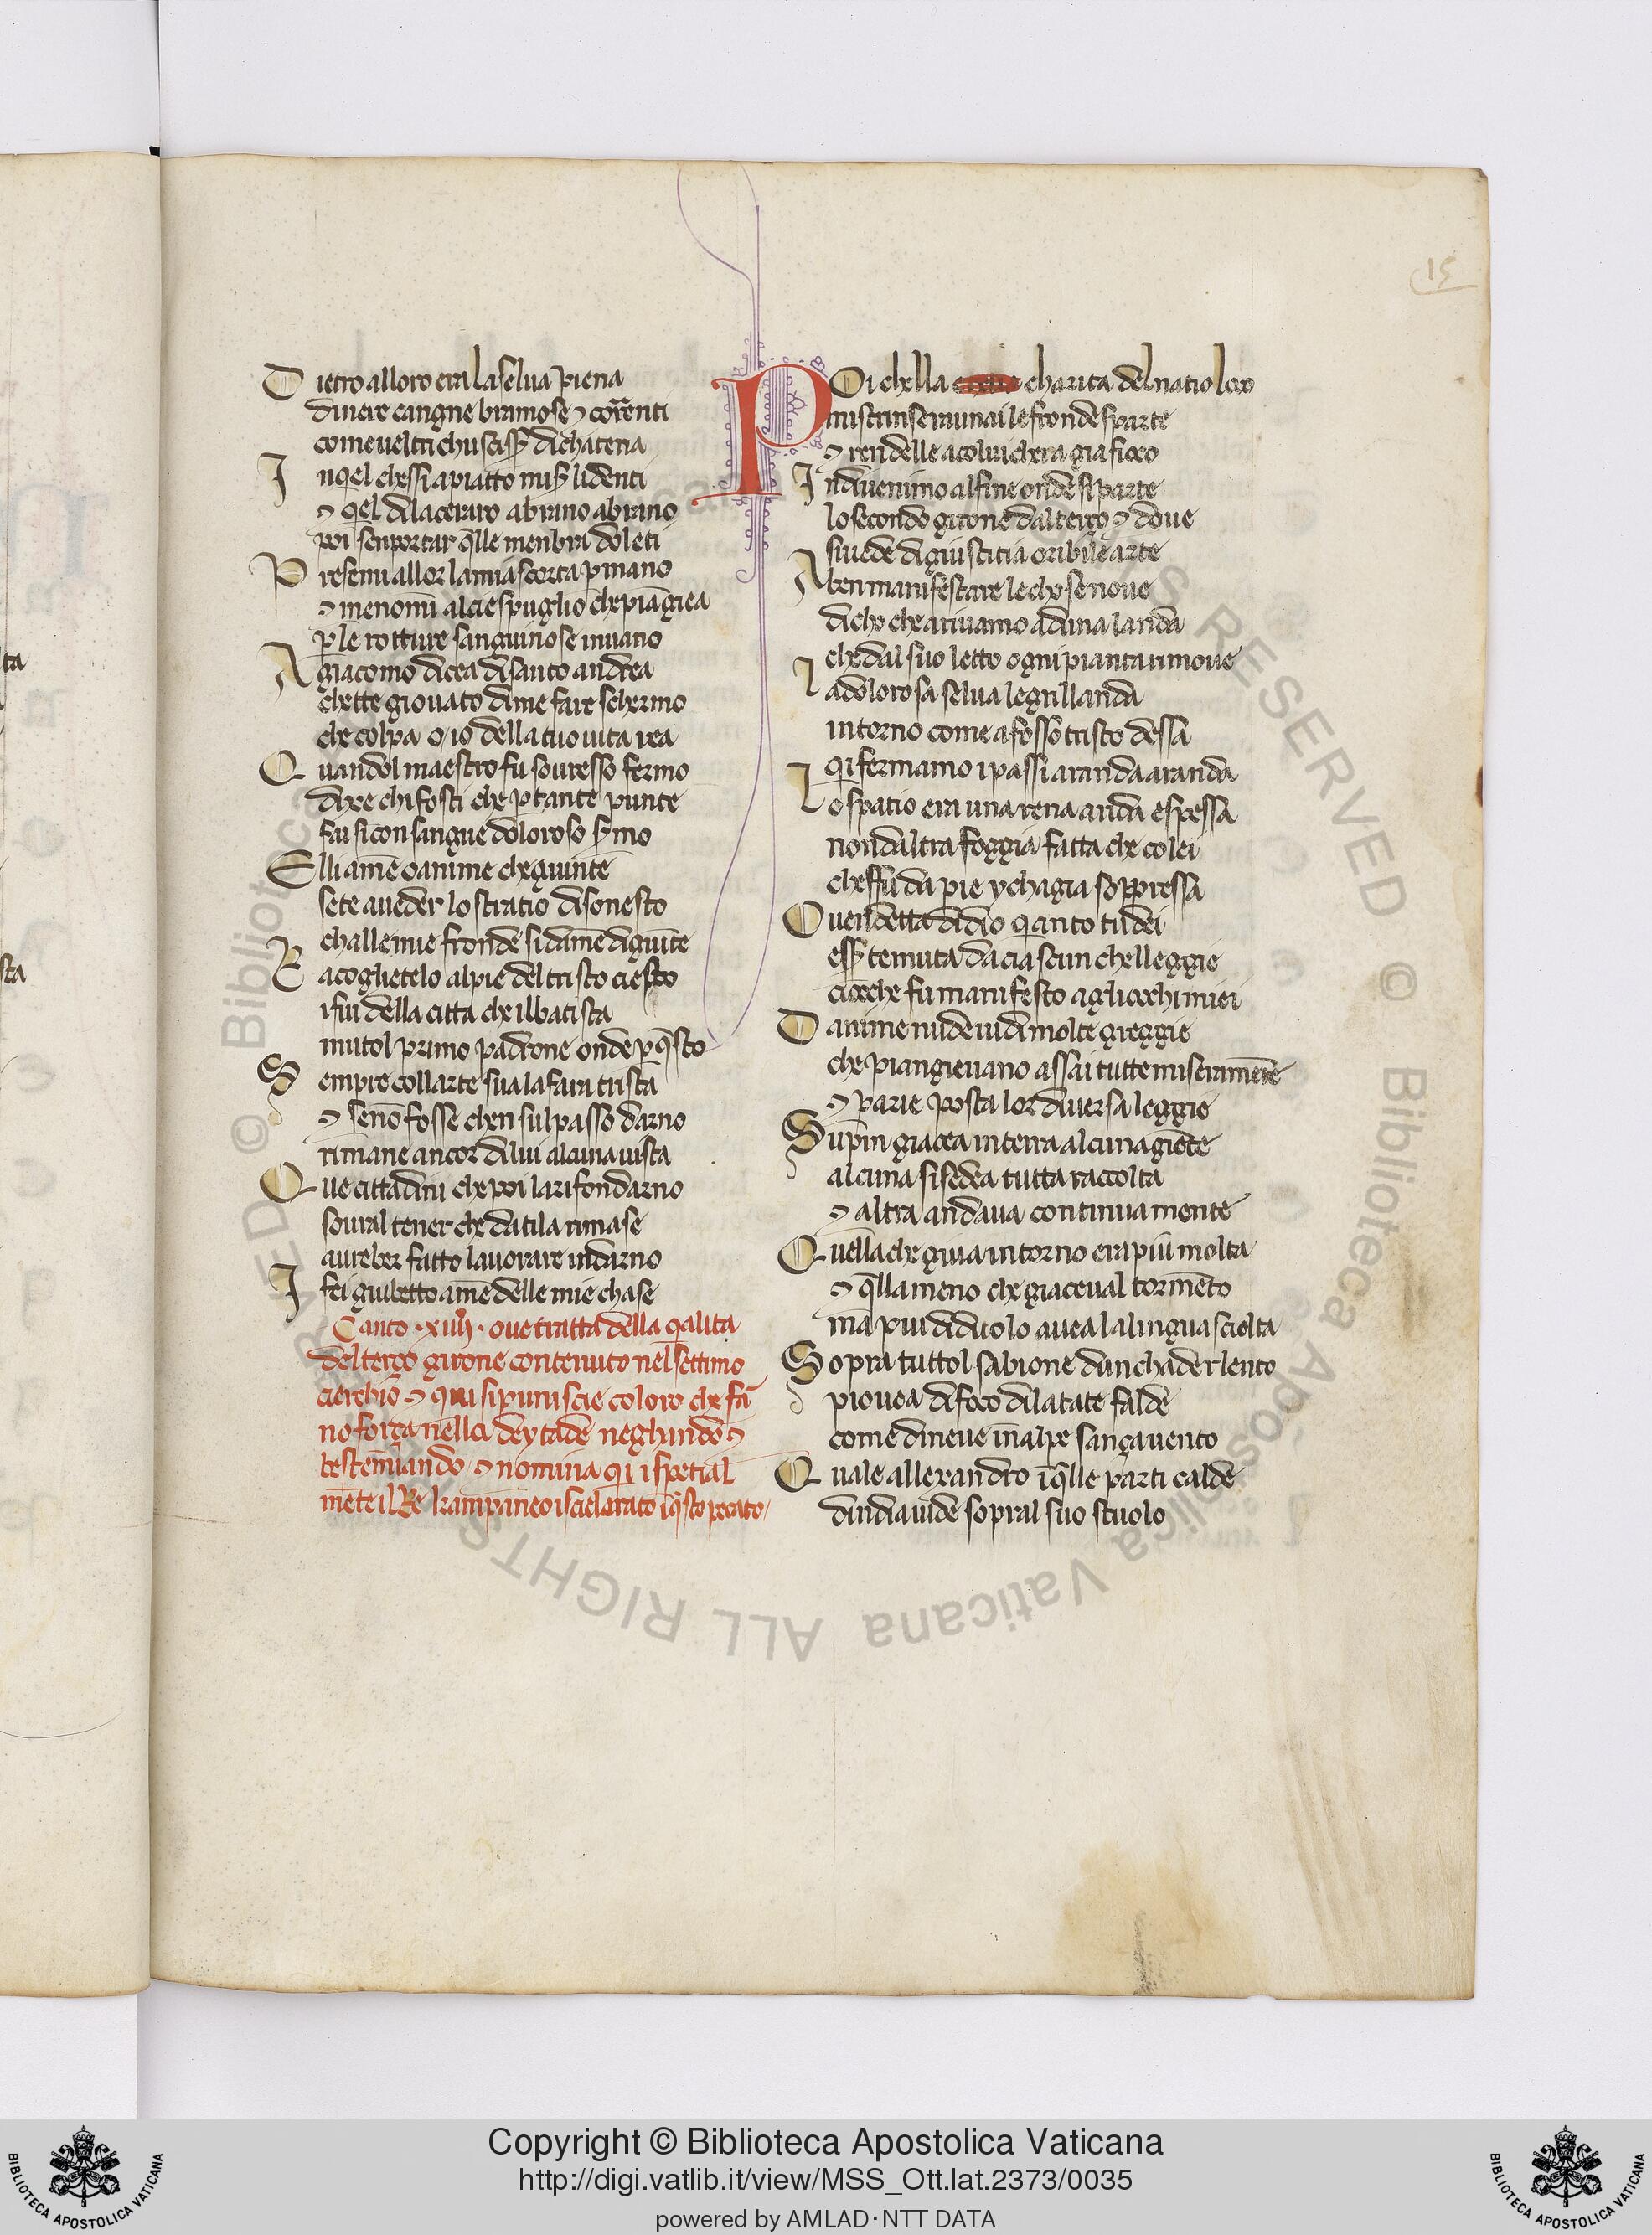 15
Dietro alloro era la selva piena
di nere cangne bramose ⁊ corrēnti
come veltri chuscisſ͛ di chatena
In q̄el chessi apiatto misſ͛ lidenti
⁊ q̄el dilaceraro abrano abrano
poi sen portar q̄lle menbra dolēti
Presemi allor la mia scorta p̱ mano
⁊ menomi al ciespuglio che piāgiea
p̱ le rotture sanguinose invano
A giacomo dicea di santo andrea
chette giovato di me fare schermo
che colpa o io della tuo vita rea
Quandol maestro fu sovresso fermo
dixe chi fosti che p̱ tante punte
fai si con sangue doloroso s̄mo
Elli amē o anime che giunte
sete aveder lo stratio disonesto
challe mie fronde si dame digiūte
Racoglietelo alpie del tristo ciesto
i fui della citta che illbatista
mutol primo padrone onde p̱ q̄sto
Sempre collarte sua la fara trista
⁊ se nō fosse chen sul passo darno
rimane ancor di lui alcuna vista
Que cittadini che poi la rifondarno
sovral tener che datila rimase
avreber fatto lavorare indarno
I fei giubetto amē delle mie chase
Canto ·xiiij· ove tratta della q̄alita
del terço girone contenuto nel settimo
cierchio ⁊ qui si puniscie coloro che fā
no força nella deytade neghando ⁊
bestēmiando ⁊ nomina q̄i ispetial
mēte il Re kampaneo iscielerato ī q̄sto pecato
POi chella charita del natio loco
mi strinse raunai le fronde sparte
⁊ rendelle a colui chera gia fioco
Indi venimo al fine onde si parte
lo secondo girone dal terço ⁊ dove
si vede di giustitia oribile arte
A ben manifestare le chose nove
dicho che arivamo ad una landa
che dal suo letto ogni pianta rimove
La dolorosa selva le grillanda
intorno come a fosso tristo dessa
q̄i fermamo i passi a randa a randa
Lo spatio era una rena arida e spessa
non daltra foggia fatta che colei
cheffu da pie y chagia soppressa
O vendetta didio q̄anto tu dei
esſ͛ temuta da ciascun chelleggie
cio che fu manifesto agli ochi miei
Danime nude vidi molte greggie
che piangievano assai tutte miseramēte
⁊ parie posta lor diversa leggie
Supin giacea in terra alcuna giēte
alcuna si sedea tutta raccolta
⁊ altra andava continvamente
Quella che giva intorno era piu molta
⁊ q̄lla meno che giaceval tormēto
ma piu diduolo avea la lingua sciolta
Sopra tuttol sabione dun chader lento
piovea di foco dilatate falde
come di neve inalpe sança vento
Quale allexandro ī q̄lle parti calde
dindia vide sopral suo stuolo
Copyright © Biblioteca Apostolica Vaticana
http://digi.vatlib.it/view/MSS_Ott.lat.2373/0035
powered by AMLAD·NTT DATA
BIBLIOTECA APOSTOLICA VATICANA
BIBLIOTECA APOSTOLICA VATICANA
© Biblioteca Apostolica Vaticana ALL RIGHTS RESERVED